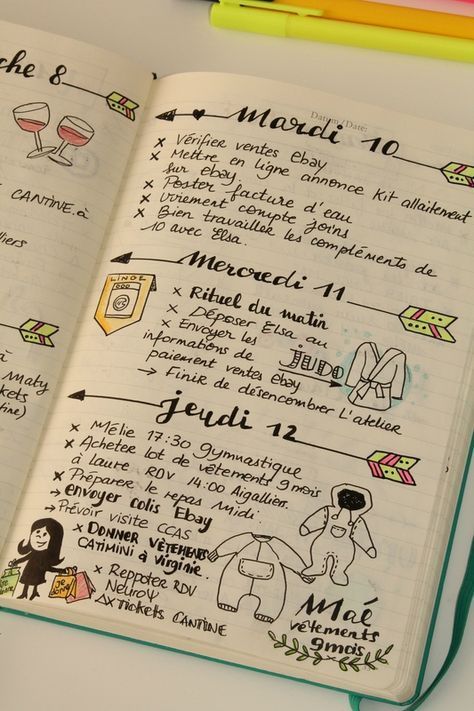 che 8
CANTINE à
lliers
à Maty
ckets
tine)
Datum/Date:
Mardi 10
x Vérifier ventes Ebay
x Mettre en ligne annonce Kit allaitement
sur ebay
x Poster facture d'eau
x Virement compte joins
x Bien travailler les compléments de
10 avec Elsa.
Mercredi 11
LINGE
x Rituel du matin
x Déposer Elsa au
JUDO
x Envoyer les
informations de
paiement ventes ebay
→ Finir de désencombrer l'atelier
jeudi 12
x Mélie 17:30 gymnastique
x Acheter lot de vêtements 9 mois
à Laure RDV 14:00 Aigallier.
x Préparer le repas Midi.
→ envoyer colis Ebay
→ Prévoir visite CCAS
x DONNER VÊTEMENTS
CATIMINI à Virginie.
x Reppoter RDV
Neuroψ
Δx Tickets CANTINE
Maé
vêtements
9 mois